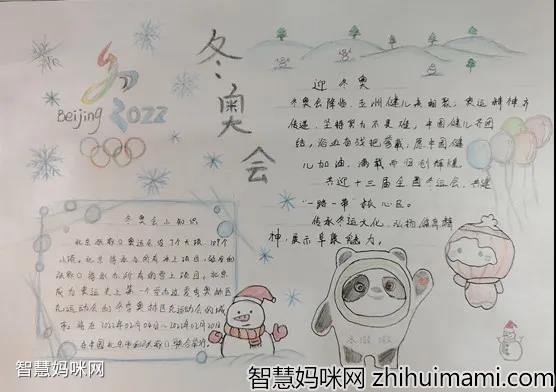 Beijing 2022
冬奥会
迎冬奥
冬奥会降临,亚洲健儿来相聚,奥运精神齐
传递,坚持努力不畏难,中国健儿齐团
结,沿业奋战把梦戴,愿中国健
儿加油,满载而归创辉煌。
共迎十三届全国冬运会,共建
一路一带核心区。
传承冬运文化,弘物体育精
神,展示阜康魅力。
冬奥会小知识
北京冬季奥运会设7个大项,109个
小项。北京将承办所有冰上项目,延庆和
张家口将承办所有的雪上项目。北京
成为奥运史上第一个举办过夏季奥林匹
克运动会和冬季奥林匹克运动会的城
市,将在2022年02月04日~2022年02月20日
在中国北京市和张家口联合举行。
冰墩墩
智慧妈咪网
智慧妈咪网 zhihuimami.com